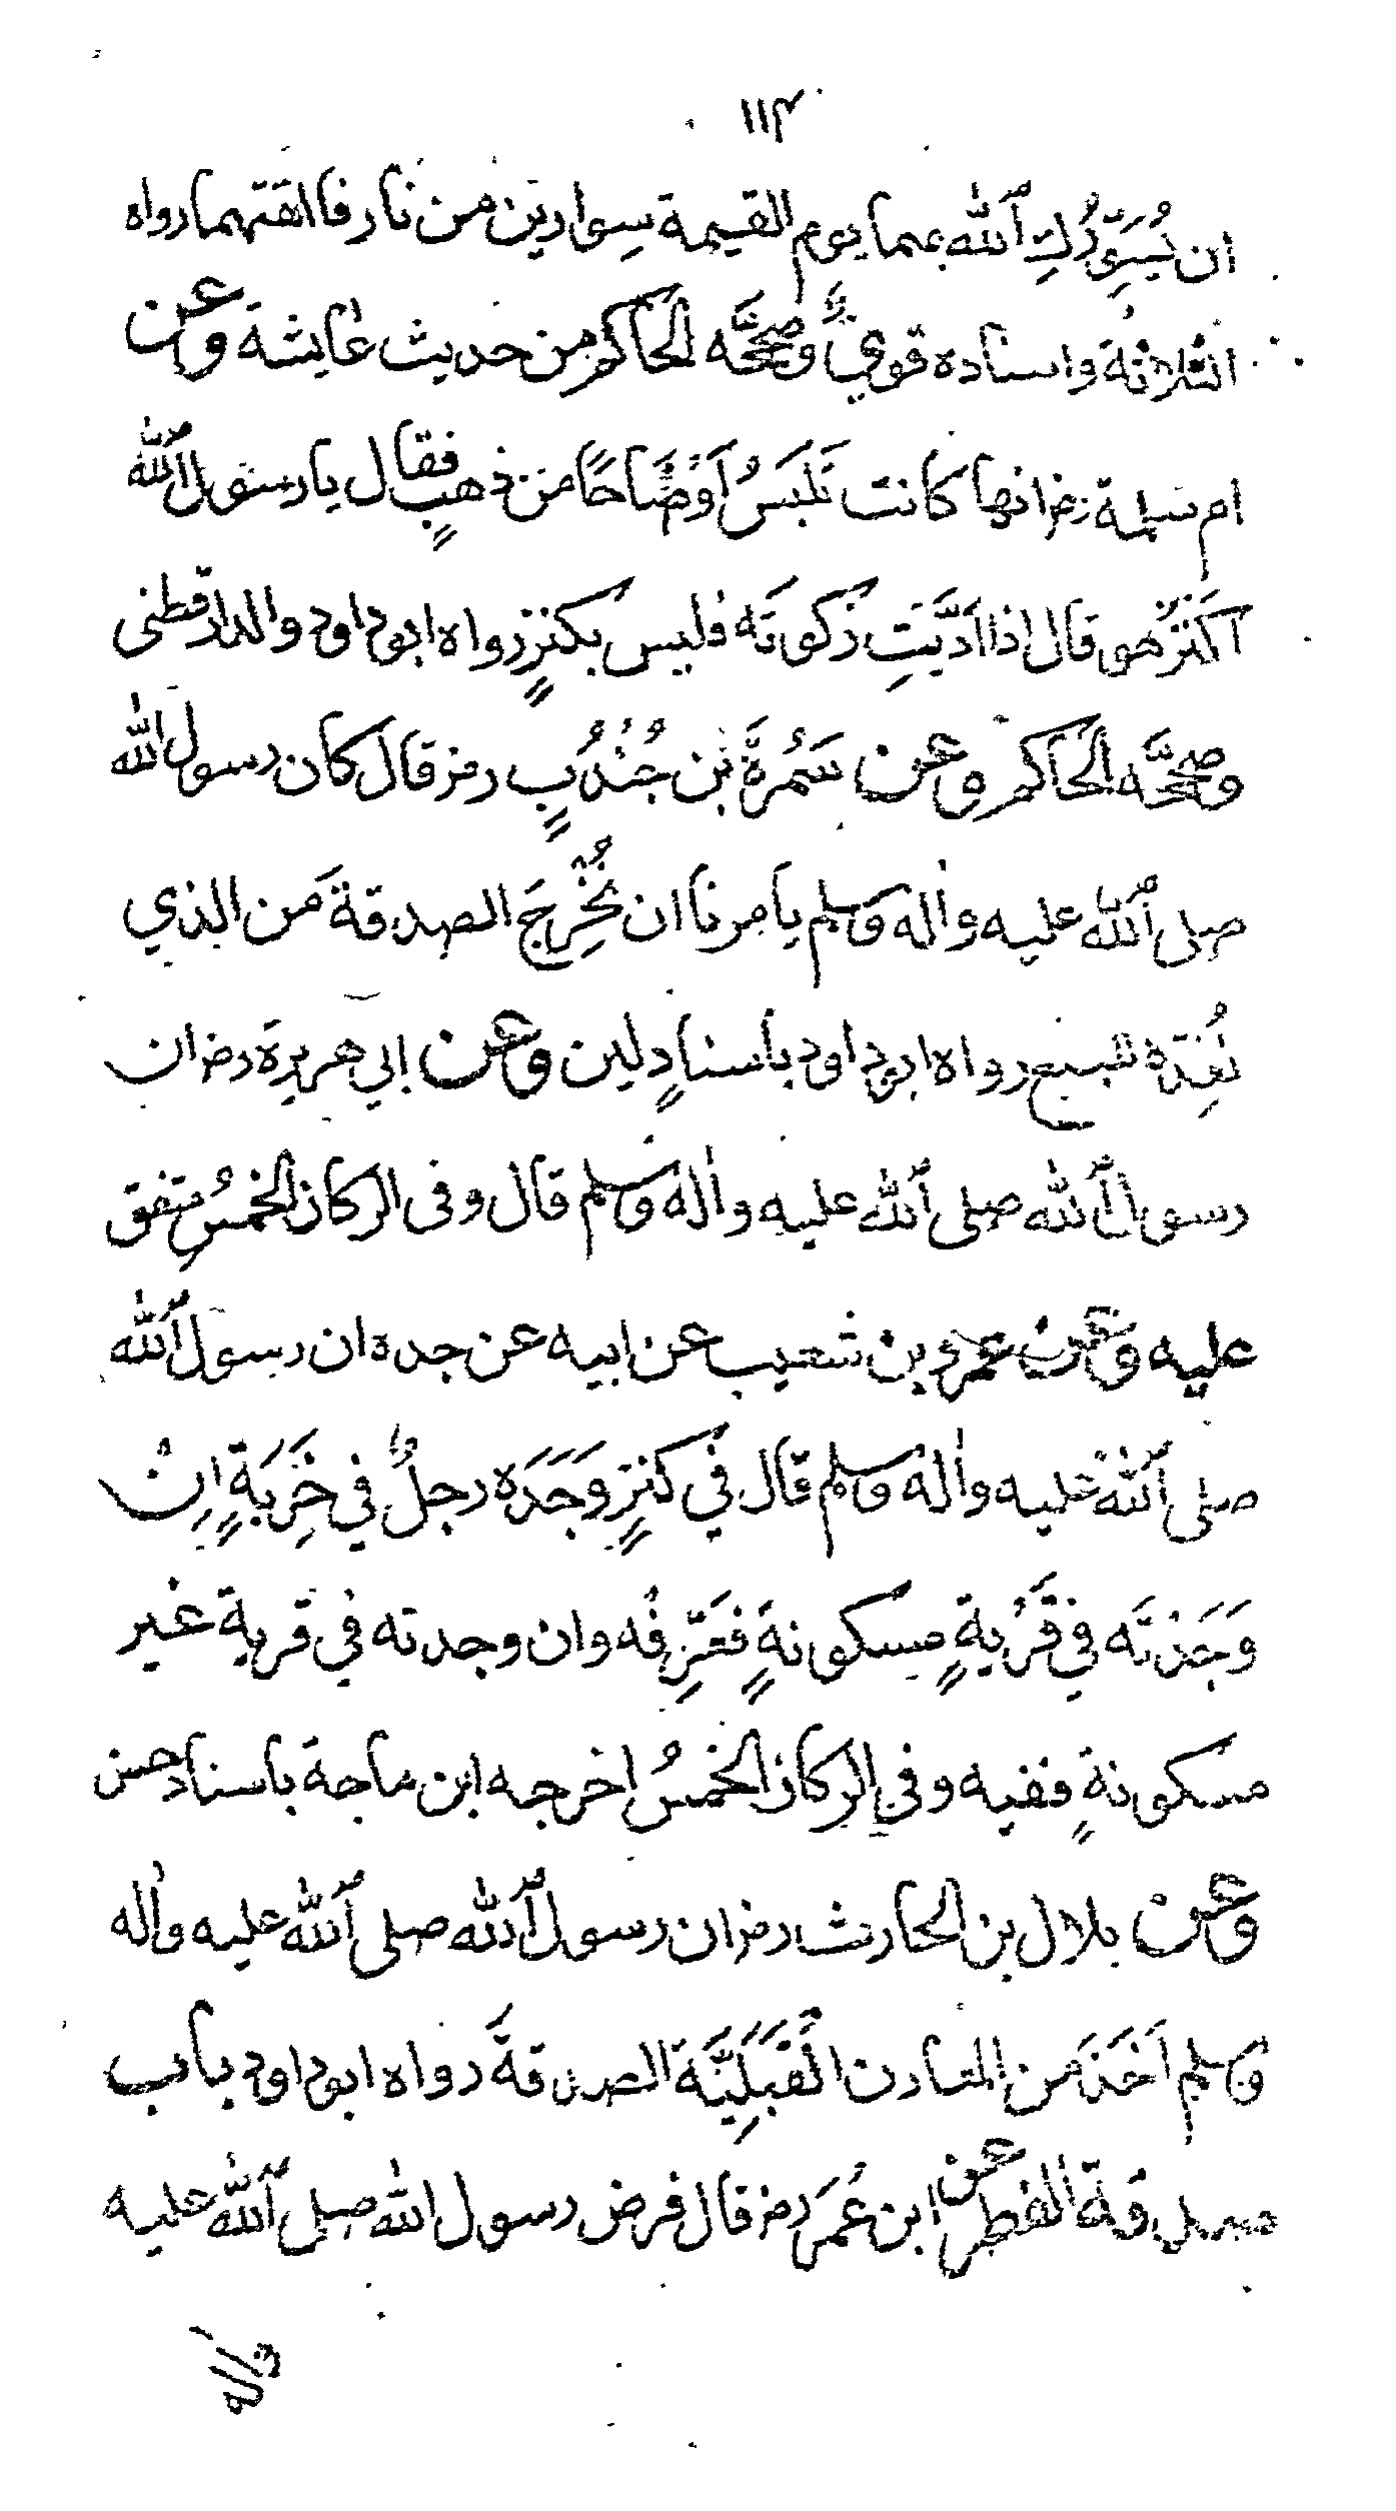 ١١٣
ان يُسَوِّرُكِ ٱلله بهما يوم القيمة سِوارين من نار فالقتهما رواه
الثلاثة واسناده قويٌّ وصحَّحَه الحاكم من حديث عايشة وعن
ام سلمة رض انها كانت تَلبَسُ اَوضَاحًا من ذهبٍ فقال يا رسول ٱلله
اَكَنزٌ هو قال اذا ادَّيتِ زكوتَه فليس بكنزٍ رواه ابوداود والدارقطنى
وصححَّه الحاكم وعن سَمُرَةَ بْن جُنْدُبٍ رض قال كان رسول الله
صلى ٱلله عليه واٰله وسلم يامرنا ان نُخْرِجَ الصدقةَ من الذي
نُعِدُّه للبيع رواه ابوداود باسنادٍ لين وعن ابي هريرة رض ان
رسول ٱلله صلى ٱلله عليه واٰله وسلم قال وفى الركاز الخمسُ متفق
عليه وعن عمرو بن شعيب عن ابيه عن جده ان رسول ٱلله
صلى ٱلله عليه واٰله وسلم قال في كنزٍ وَجَدَه رجلٌ في خَرِبَةٍ اِنْ
وَجَدْتَه في قَرْيةٍ مسكونةٍ فعَرِّفْه وان وجدته في قرية غير
مسكونةٍ ففيه وفي الركاز الخمسُ اخرجه ابن ماجة باسناد حسن
وعن بلال بن الحارث رض ان رسول ٱلله صلى ٱلله عليه واٰله
وسلم اَخَذَ من المعادن الْقَبَلِيَّة الصدقةَ رواه ابوداود باب
صدقة الفطر عن ابن عُمَرَ رض قال فرض رسول الله صلى ٱلله عليه
واله